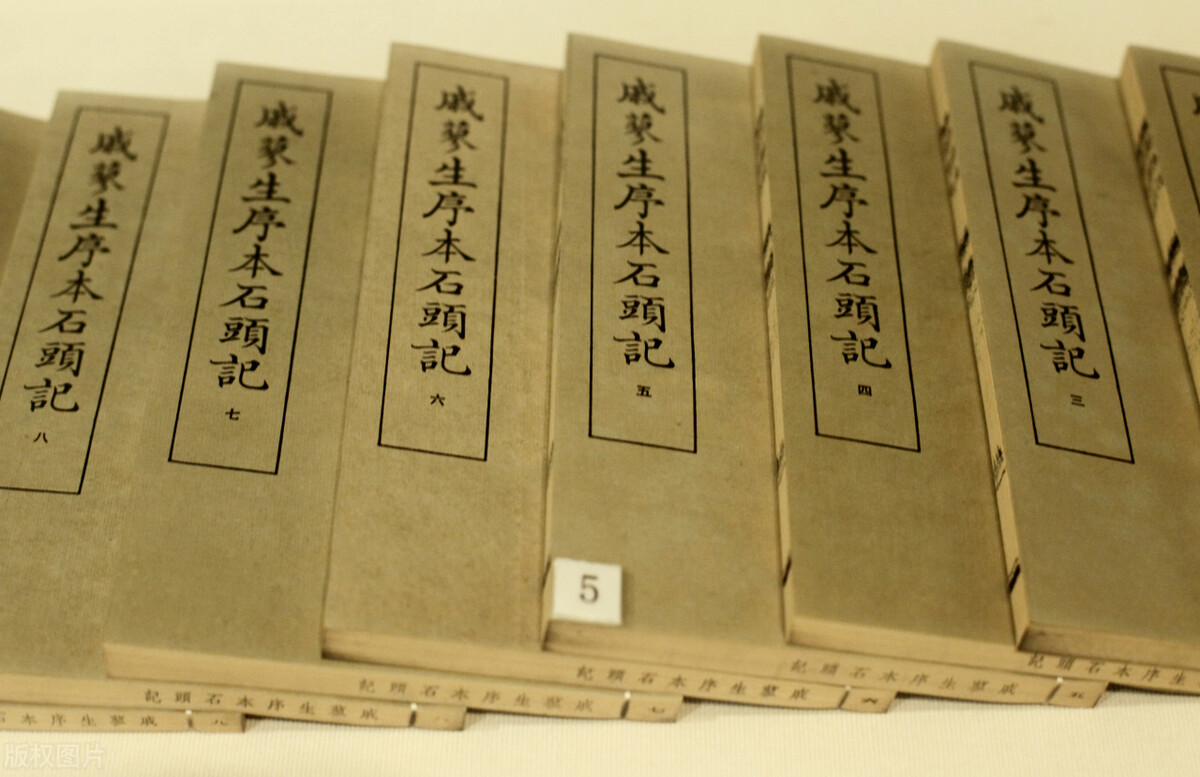 戚蓼生序本石頭記 三
戚蓼生序本石頭記 四
戚蓼生序本石頭記 五
戚蓼生序本石頭記 六
戚蓼生序本石頭記 七
戚蓼生序本石頭記 八
5
生序本石頭記
五 戚蓼生序本石頭記
六 戚蓼生序本石頭記
七 戚蓼生序本石頭記
戚蓼生序本石頭記
八 戚蓼生序本石
版权图片